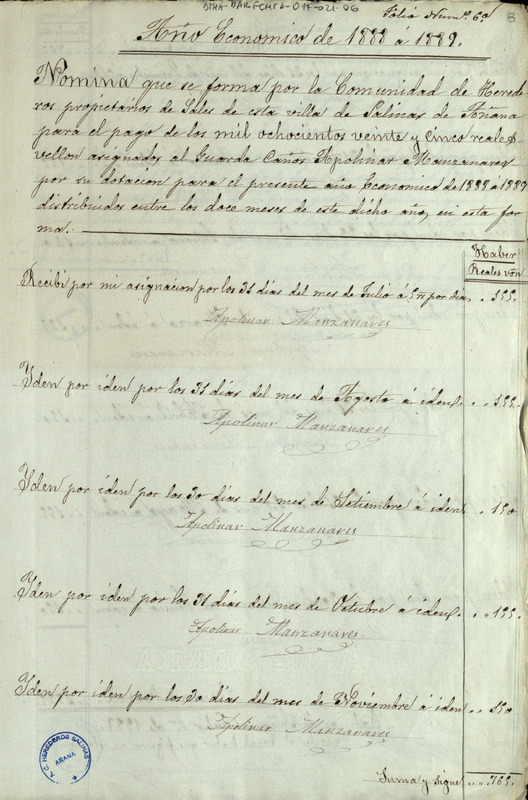 DTHA-DAR-FCHTD-017-021-06
Folio Num.º 6º
8
Año Economico de 1888 á 1889.
Nomina que se forma por la Comunidad de Herede
ros propietarios de Sales de esta villa de Salinas de Añana
para el pago de los mil ochocientos veinte y cinco reales
vellon asignados al Guarda Caños Apolinar Manzanares
por su dotacion para el presente año Economico de 1888 a 1889
distribuidos entre los doce meses de este dicho año, en esta for
ma.
Haber
Reales von
Recibi por mi asignacion por los 31 dias del mes de Julio á 5 rs por dia, 155.
Apolinar Manzanares
Yden por iden por los 31 dias del mes de Agosto á iden. 155.
Apolinar Manzanares
Yden por iden por los 30 dias del mes de Setiembre á iden 150
Apolinar Manzanares
Yden por iden por los 31 dias del mes de Octubre á iden. 155.
Apolinar Manzanares
Yden por iden por los 30 dias del mes de Noviembre á iden 150
Apolinar Manzanares
Suma y Sigue 765.
C. HEREDEROS SALINAS
AÑANA